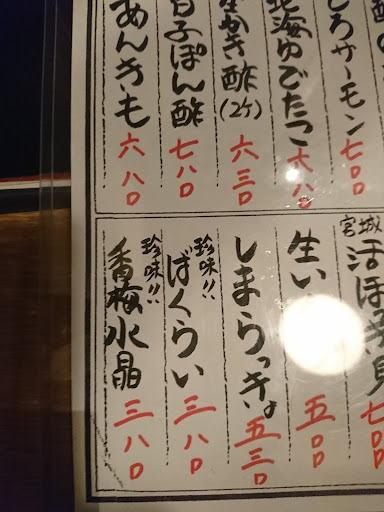 しろサーモン 七〇〇
北海ゆでたこ 六八〇
生かき酢(2ケ) 六三〇
白子ぽん酢 七八〇
あんきも 六八〇
宮城 活ほっき貝 七〇〇
生い 五〇〇
しまらっきょ 五三〇
珍味!! ばくらい 三八〇
珍味!! 香梅水晶 三八〇